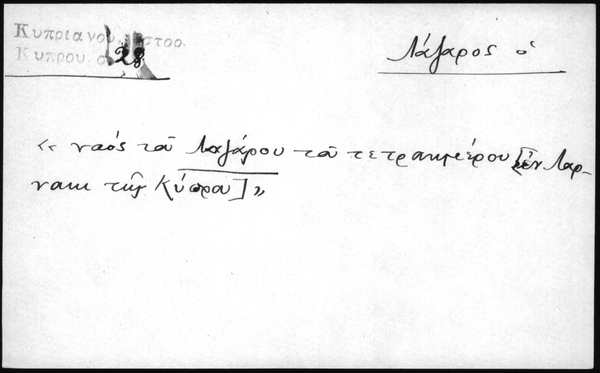 Κυπριανού ιστορ.
Κύπρου σ. 28
Λάζαρος ὁ
« ναός τοῦ Λαζάρου τοῦ τετραημέρου [ἐν Λαρ-
νακι τῆς Κύπρου] »